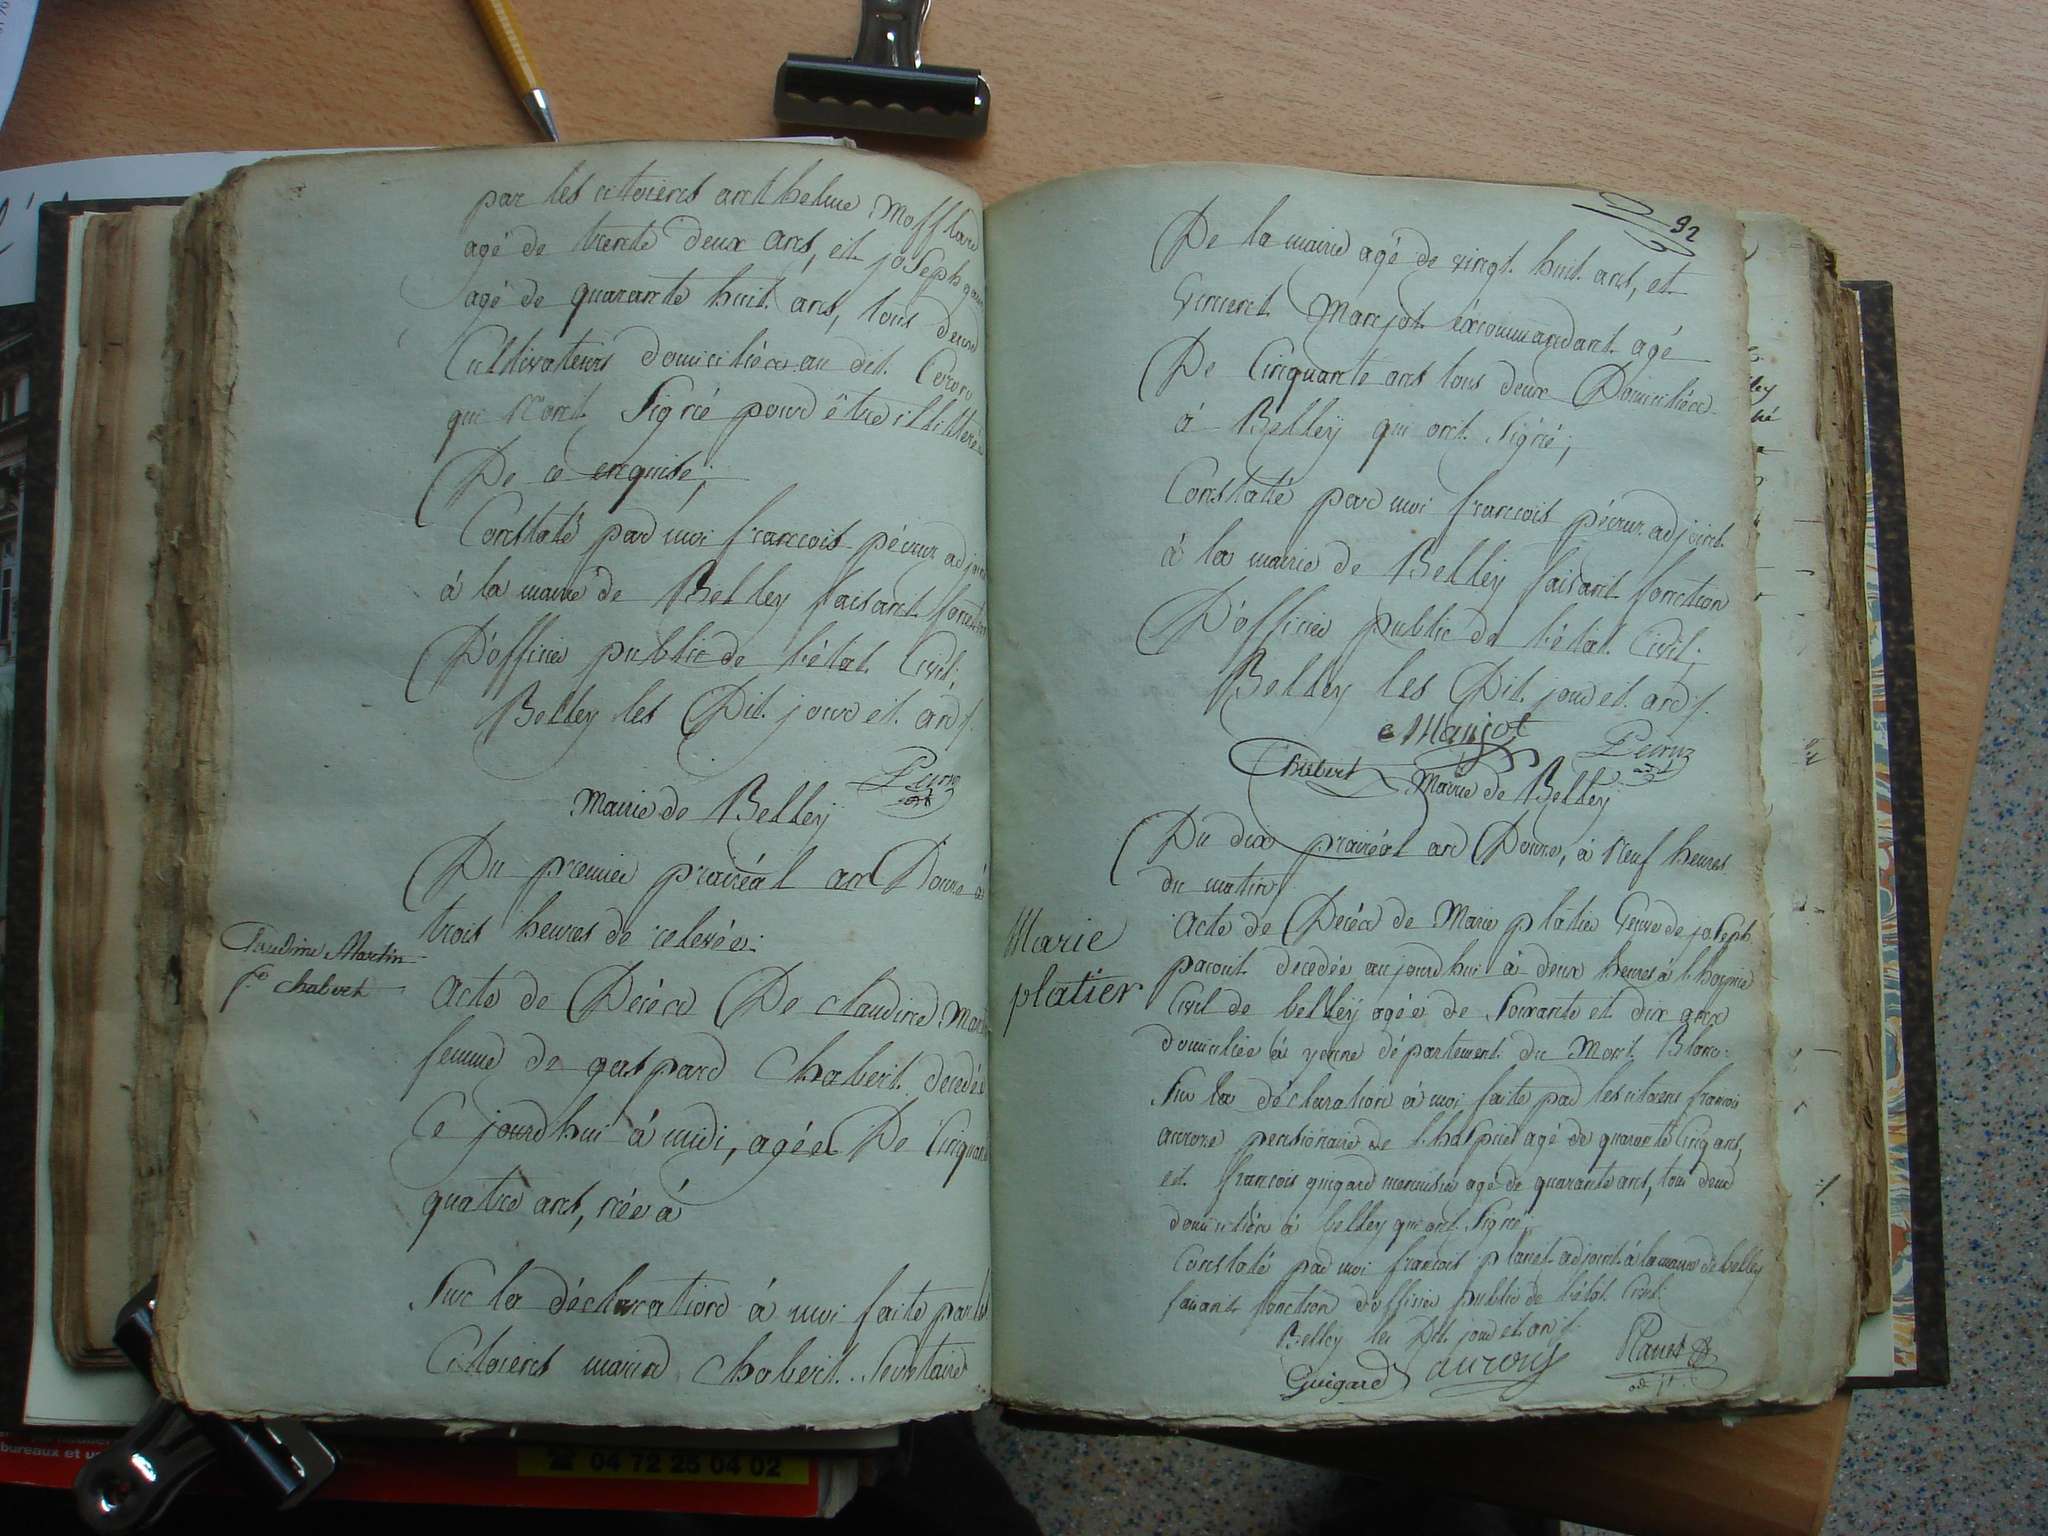 par les citoiens anthelme Mofflard
agé de trente deux ans, et joseph
agé de quarante huit ans, tous deux
Cultivateurs domiciliés au dit
qui n'ont Signé pour être illitteré
De ce enquise;
Constaté par moi francois adjoint
à la mairie de Belley faisant fonction
D'officier public de l'état Civil;
Belley les Dit jour et an
Mairie de Belley
Du premier prairéal an Douze à
trois heures de relevée:
Claudine Martin
fe chabert
acte de Décéd De claudine Martin
femme de gaspard Chabert decedée
Ce jourdhui à midi, agée De Cinquante
quatre ans, née à
Sur la déclaration à moi faite par les
Citoiens mairied Chabert Secretaire
92
De la mairie agé de vingt huit ans, et
Vincent Marjot éxcommandant agé
De Cinquante ans tous deux Domiciliés
à Belley qui ont Signé;
Constaté par moi francois adjoint
à la mairie de Belley faisant fonction
D'officier public de l'état Civil;
Belley les Dit jour et an
Marjot
Chabert
Mairie de Belley
Du dix prairéal an Douze, à neuf heures
du matin
Marie
platier
acte de Décéd de Marie platier Veuve de joseph
decedée aujourdhui à deux heures à l'hospice
Civil de belley agée de Soixante et dix ans
domiciliée à yenne département du Mont Blanc.
Sur la déclaration à moi faite par les citoiens francois
pensionaire de l'hospice agé de quarante Cinq ans,
et francois guigard menuisier agé de quarante ans, tous deux
domiciliés à belley qui ont Signé;
Constaté par moi francois planet adjoint à la mairie de belley
faisant fonction d'officier public de l'état Civil
Belley les Dit jour et an
Guigard
Planet
adjt
bureaux et
04 72 25 04 02